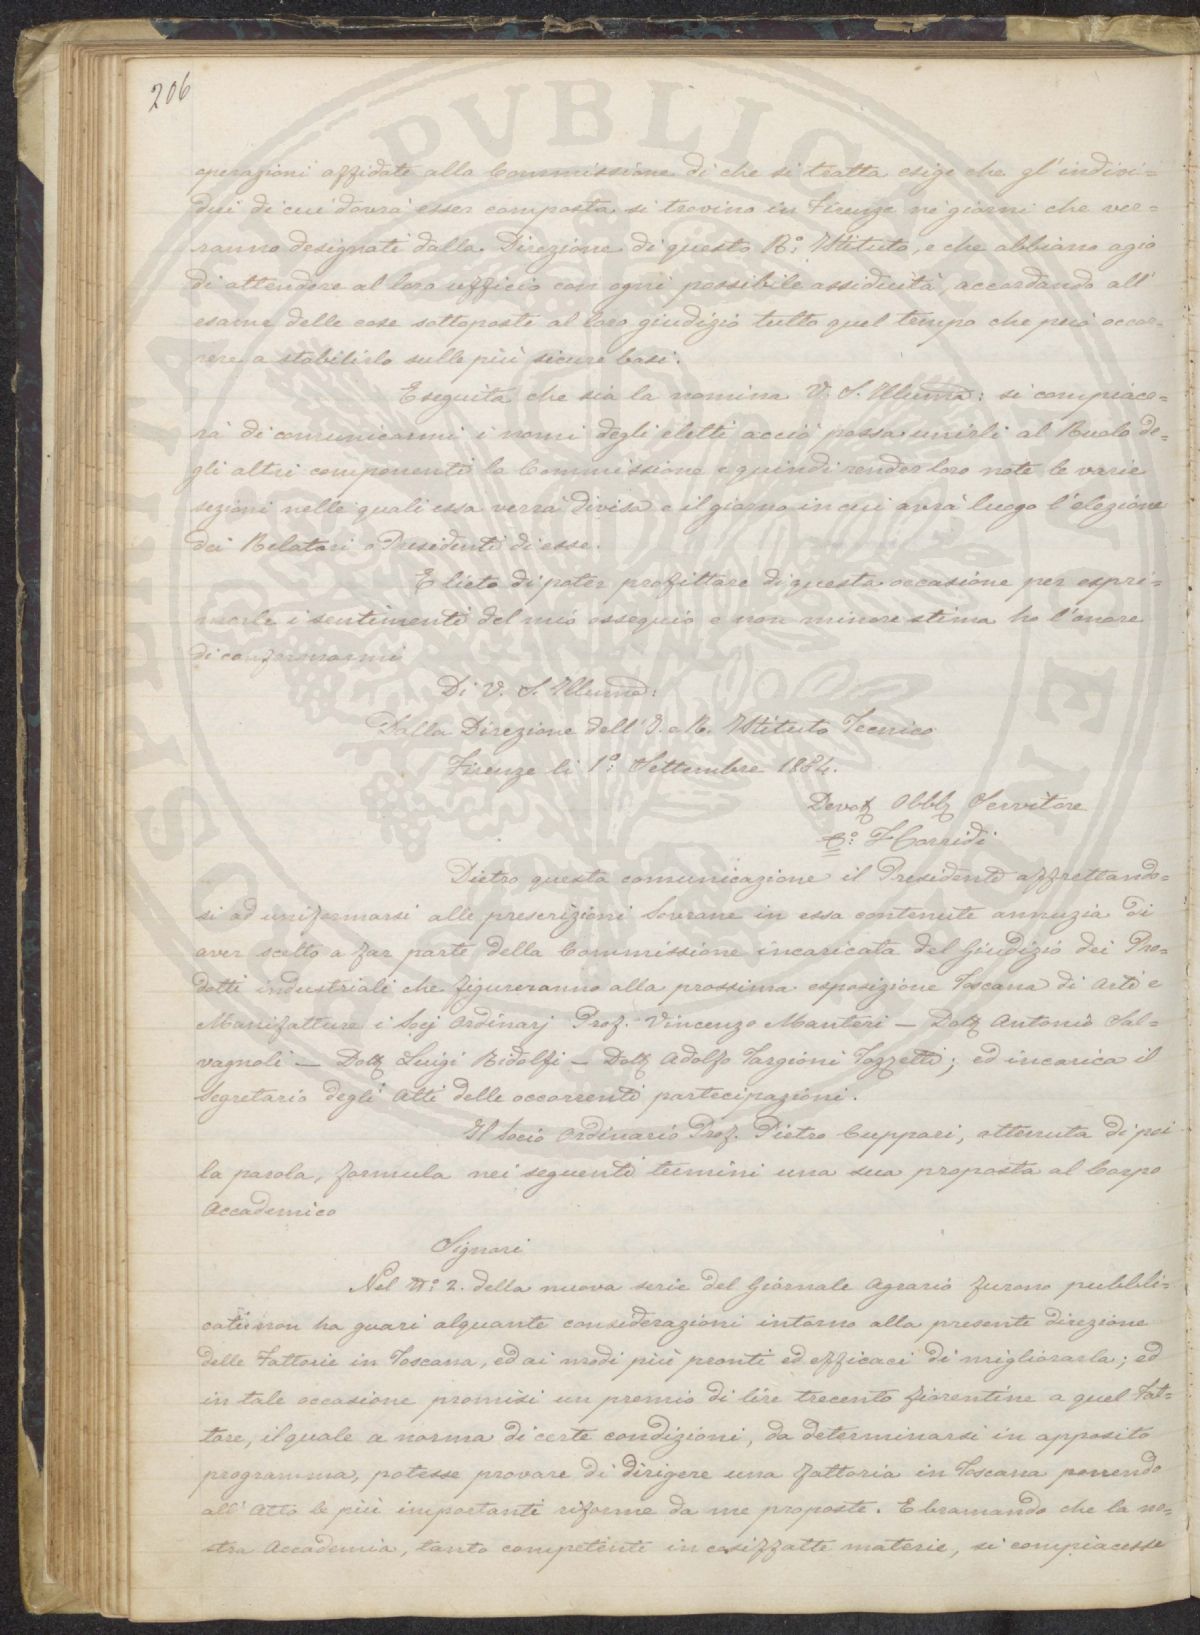 206
operazioni affidate alla Commissione di che si tratta esige che gl'indivi=
dui di cui dovrà esser composta si trovino in Firenze ne' giorni che ver=
ranno designati dalla Direzione di questo R.° Istituto, e che abbiano agio
di attendere al loro ufficio con ogni possibile assiduità, accordando all'
esame delle cose sottoposte al loro giudizio tutto quel tempo che può occor=
rere a stabilirlo sulle più sicure basi.
Eseguita che sia la nomina V. S. Illuma: si compiace=
rà di comunicarmi i nomi degli eletti acciò possa unirli al Ruolo de=
gli altri componenti la Commissione e quindi render loro note le varie
sezioni nelle quali essa verrà divisa e il giorno in cui avrà luogo l'elezione
dei Relatori o Presidenti di esse.
E lieto di poter profittare di questa occasione per espri=
merle i sentimenti del mio ossequio e non minore stima ho l'onore
di confermarmi
Di V. S. Illuma:
Dalla Direzione dell'I. e R. Istituto Tecnico
Firenze li 1°: Settembre 1854.
Devot Obbl Servitore
F Corridi
Dietro questa comunicazione il Presidente affrettando=
si ad uniformarsi alle prescrizioni Sovrane in essa contenute annuzia di
aver scelto a far parte della Commissione incaricata del Giudizio dei Pro=
dotti industriali che figureranno alla prossima esposizione Toscana di Arti e
Manifatture i Socj Ordinarj Prof. Vincenzo Manteri — Dott Antonio Sal=
vagnoli — Dott Luigi Ridolfi — Dott Adolfo Targioni Tozzetti; ed incarica il
Segretario degli Atti delle occorrenti partecipazioni.
Il Socio Ordinario Prof. Pietro Cuppari, ottenuta di poi
la parola, formula nei seguenti termini una sua proposta al Corpo
Accademico
Signori
Nel N°. 2. della nuova serie del Giornale Agrario furono pubbli=
cati non ha guari alquante considerazioni intorno alla presente direzione
delle Fattorie in Toscana, ed ai modi più pronti ed efficaci di migliorarla; ed
in tale occasione promisi un premio di lire trecento fiorentine a quel Fat=
tore, il quale a norma di certe condizioni, da determinarsi in apposito
programma, potesse provare di dirigere una fattoria in Toscana ponendo
all'Atto le più importanti riforme da me proposte. E bramando che la no=
stra Accademia, tanto competente in cosiffatte materie, si compiacesse